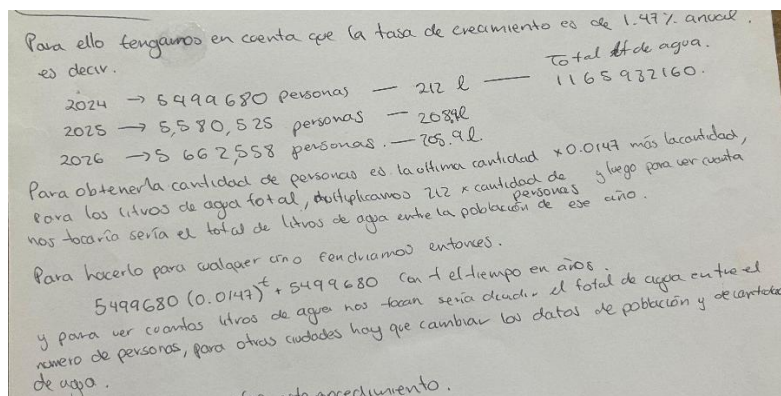 Para ello tengamos en cuenta que la tasa de crecimiento es de 1.47% anual.
es decir.
Total lt de agua.
2024 → 5499680 personas — 212 l — 1165932160.
2025 → 5,580,525 personas — 208.9l
2026 → 5 662,558 personas. — 205.9l.
Para obtener la cantidad de personas es la ultima cantidad x0.0147 más la cantidad,
para los litros de agua total, multiplicamos 212 x cantidad de personas y luego para ver cuanta
nos tocaría sería el total de litros de agua entre la población de ese año.
Para hacerlo para cualquier año tendriamos entonces.
5499680 (0.0147)^t + 5499680 Con t el tiempo en años.
y para ver cuantos litros de agua nos tocan seria dividir el total de agua entre el
numero de personas, para otras ciudades hay que cambiar los datos de población y de cantidad
de agua.
procedimiento.